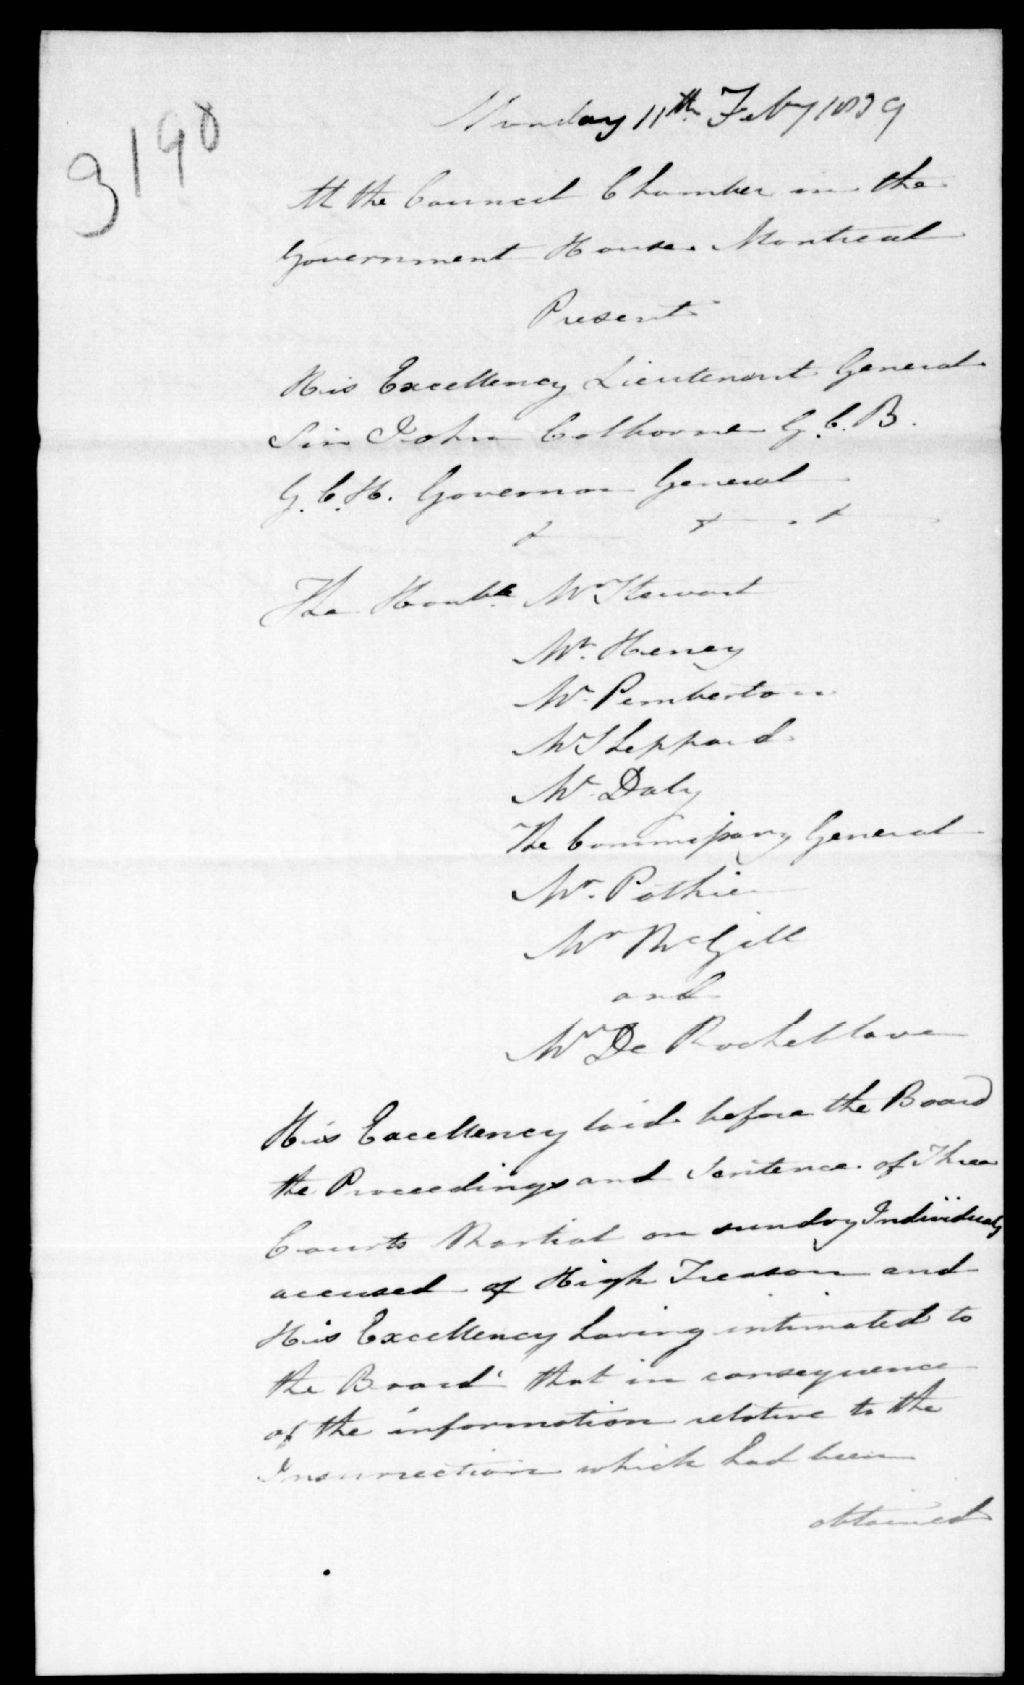 3198
Monday 11th Feby 1839
At the Council Chamber in the
Government House Montreal
Present
His Excellency Lieutenant General
Sir John Colborne G.C.B.
G.C.H. Governor General
& & &
The Honble Mr Stewart
Mr. Heney
Mr Pemberton
Mr Sheppard
Mr Daly
The Commissary General
Mr. Pothier
Mr McGill
and
Mr De Rocheblave
His Excellency laid before the Board
the Proceedings and Sentence of Three
Courts Martial on sundry Individuals
accused of High Treason and
His Excellency having intimated to
the Board that in consequence
of the information relative to the
Insurrection which had been
obtained